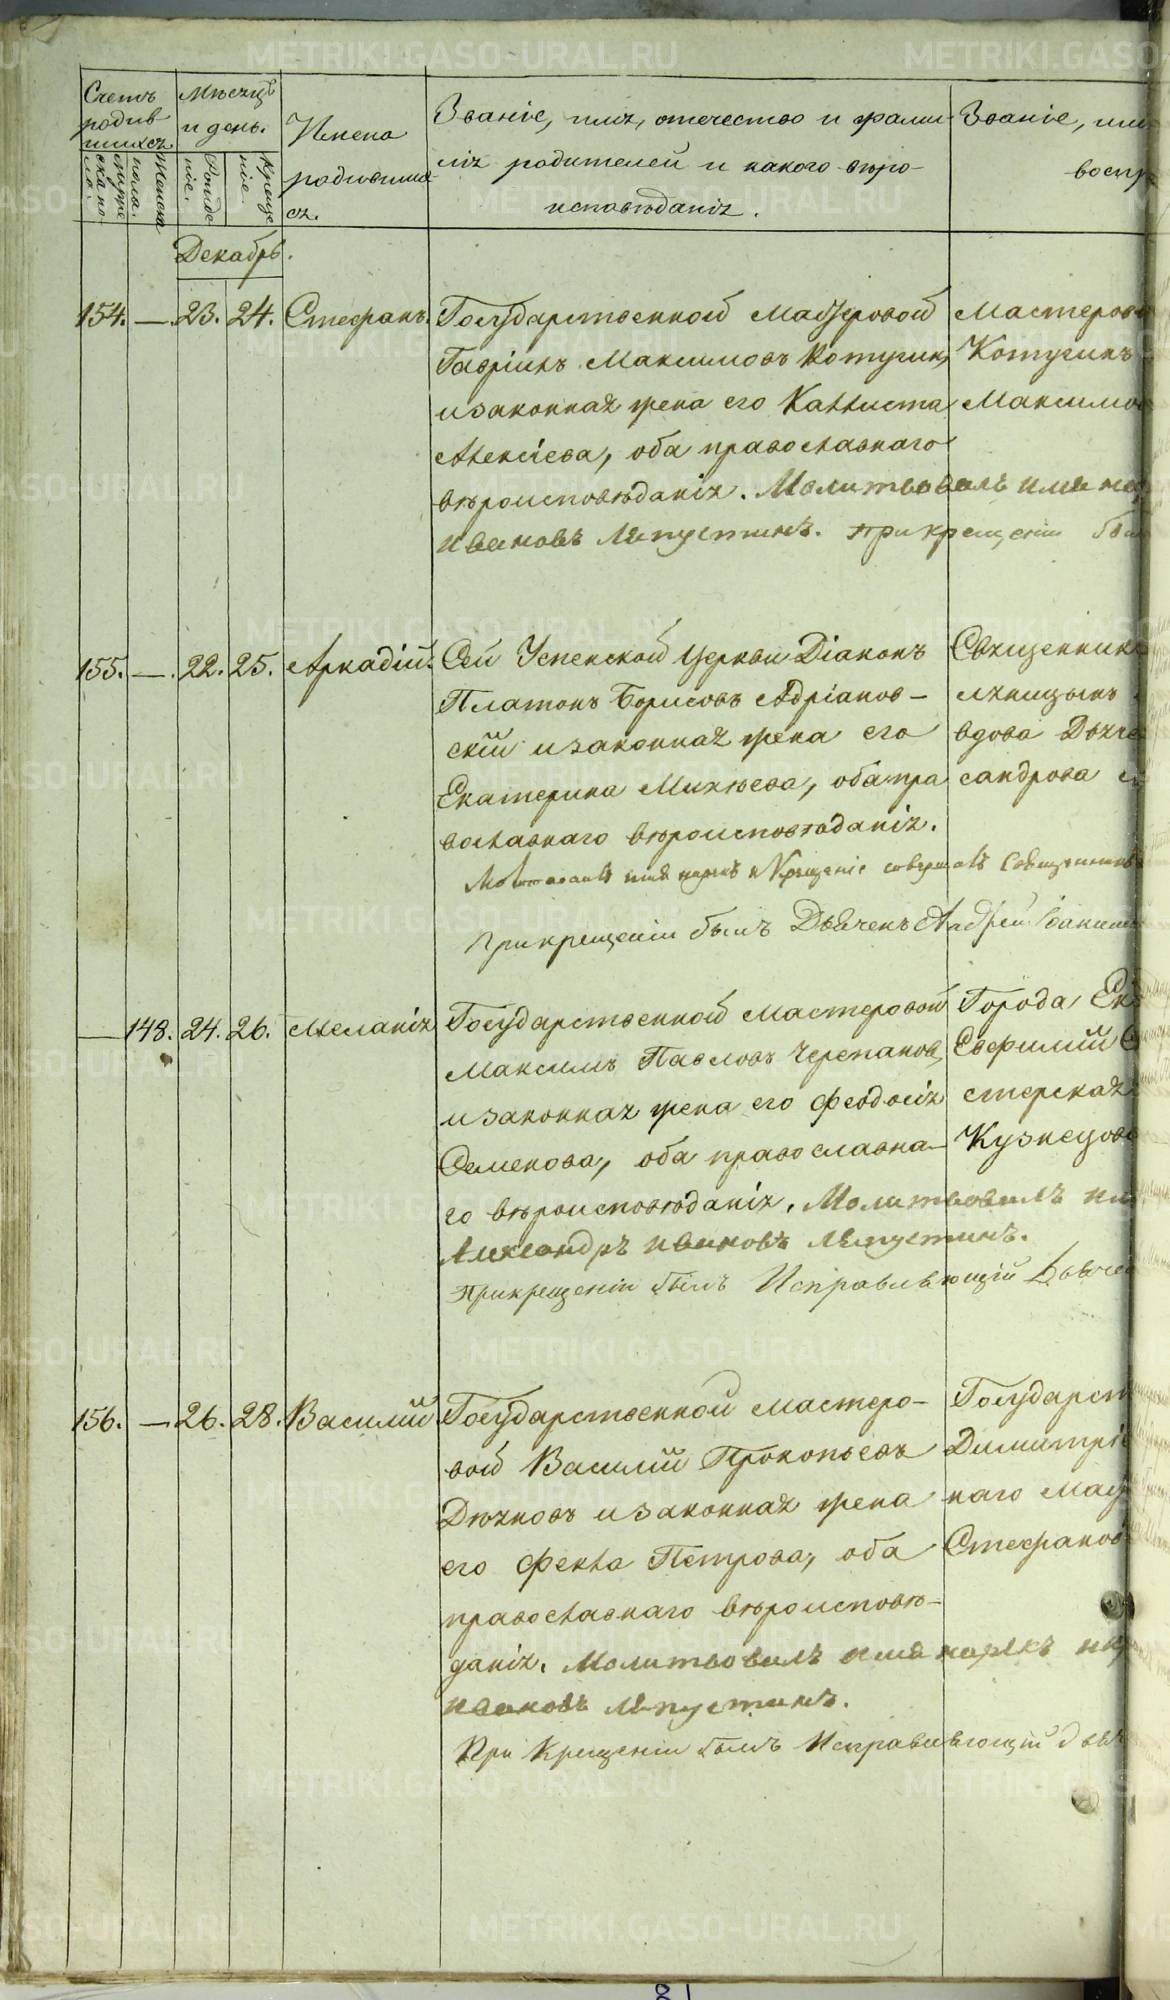 Счетъ родив шихся
Мѣсяцъ и день.
мужеска пола.
Женска пола.
Рожде нiе.
Креще нiе.
Имена
родивших
ся.
Званіе, имя, отечество и фами
лія родителей и какого вѣро-
исповѣданія.
Званіе, имя
воспр
Декабрь.
154. — 23. 24. Стефанъ.
Государственной мастеровой
Гавріилъ Максимовъ Котугинъ,
и законная жена его Каллиста
Алексіева, оба православнаго
вѣроисповѣданія. Молитвовалъ имя на
Ивановъ Ляпустинъ. При крещеніи бы
Мастеров
Котугинъ
Максимов
155. — 22. 25. Аркадій.
Сей Успенской церкви Діаконъ
Платонъ Борисовъ Адріанов-
скій и законная жена его
Екатерина Михѣева, оба пра
вославнаго вѣроисповѣданія.
Молитвовалъ имя нарекъ и Крещеніе совершалъ Священникъ
При крещеніи былъ Дьячекъ Андрей
Священник
вдова Дьяче
сандрова
— 148. 24. 26. Меланія
Государственной мастеровой
Максимъ Павловъ Черепановъ,
и законная жена его Феодосія
Семенова, оба православна-
го вѣроисповѣданія. Молитвовалъ им
Александръ Ивановъ Ляпустинъ.
При крещеніи былъ Исправляющій Дьяче
Города Ека
Евфимій
стерская
Кузнецова
156. — 26. 28. Василій
Государственной мастеро-
вой Василій Прокопьевъ
Дьячковъ и законная жена
его Фекла Петрова, оба
православнаго вѣроисповѣ-
данія. Молитвовалъ имя нарекъ
Ивановъ Ляпустинъ.
При Крещеніи былъ Исправляющій дья
Государст
Димитрі
наго мас
Стефанов
81
METRIKI.GASO-URAL.RU